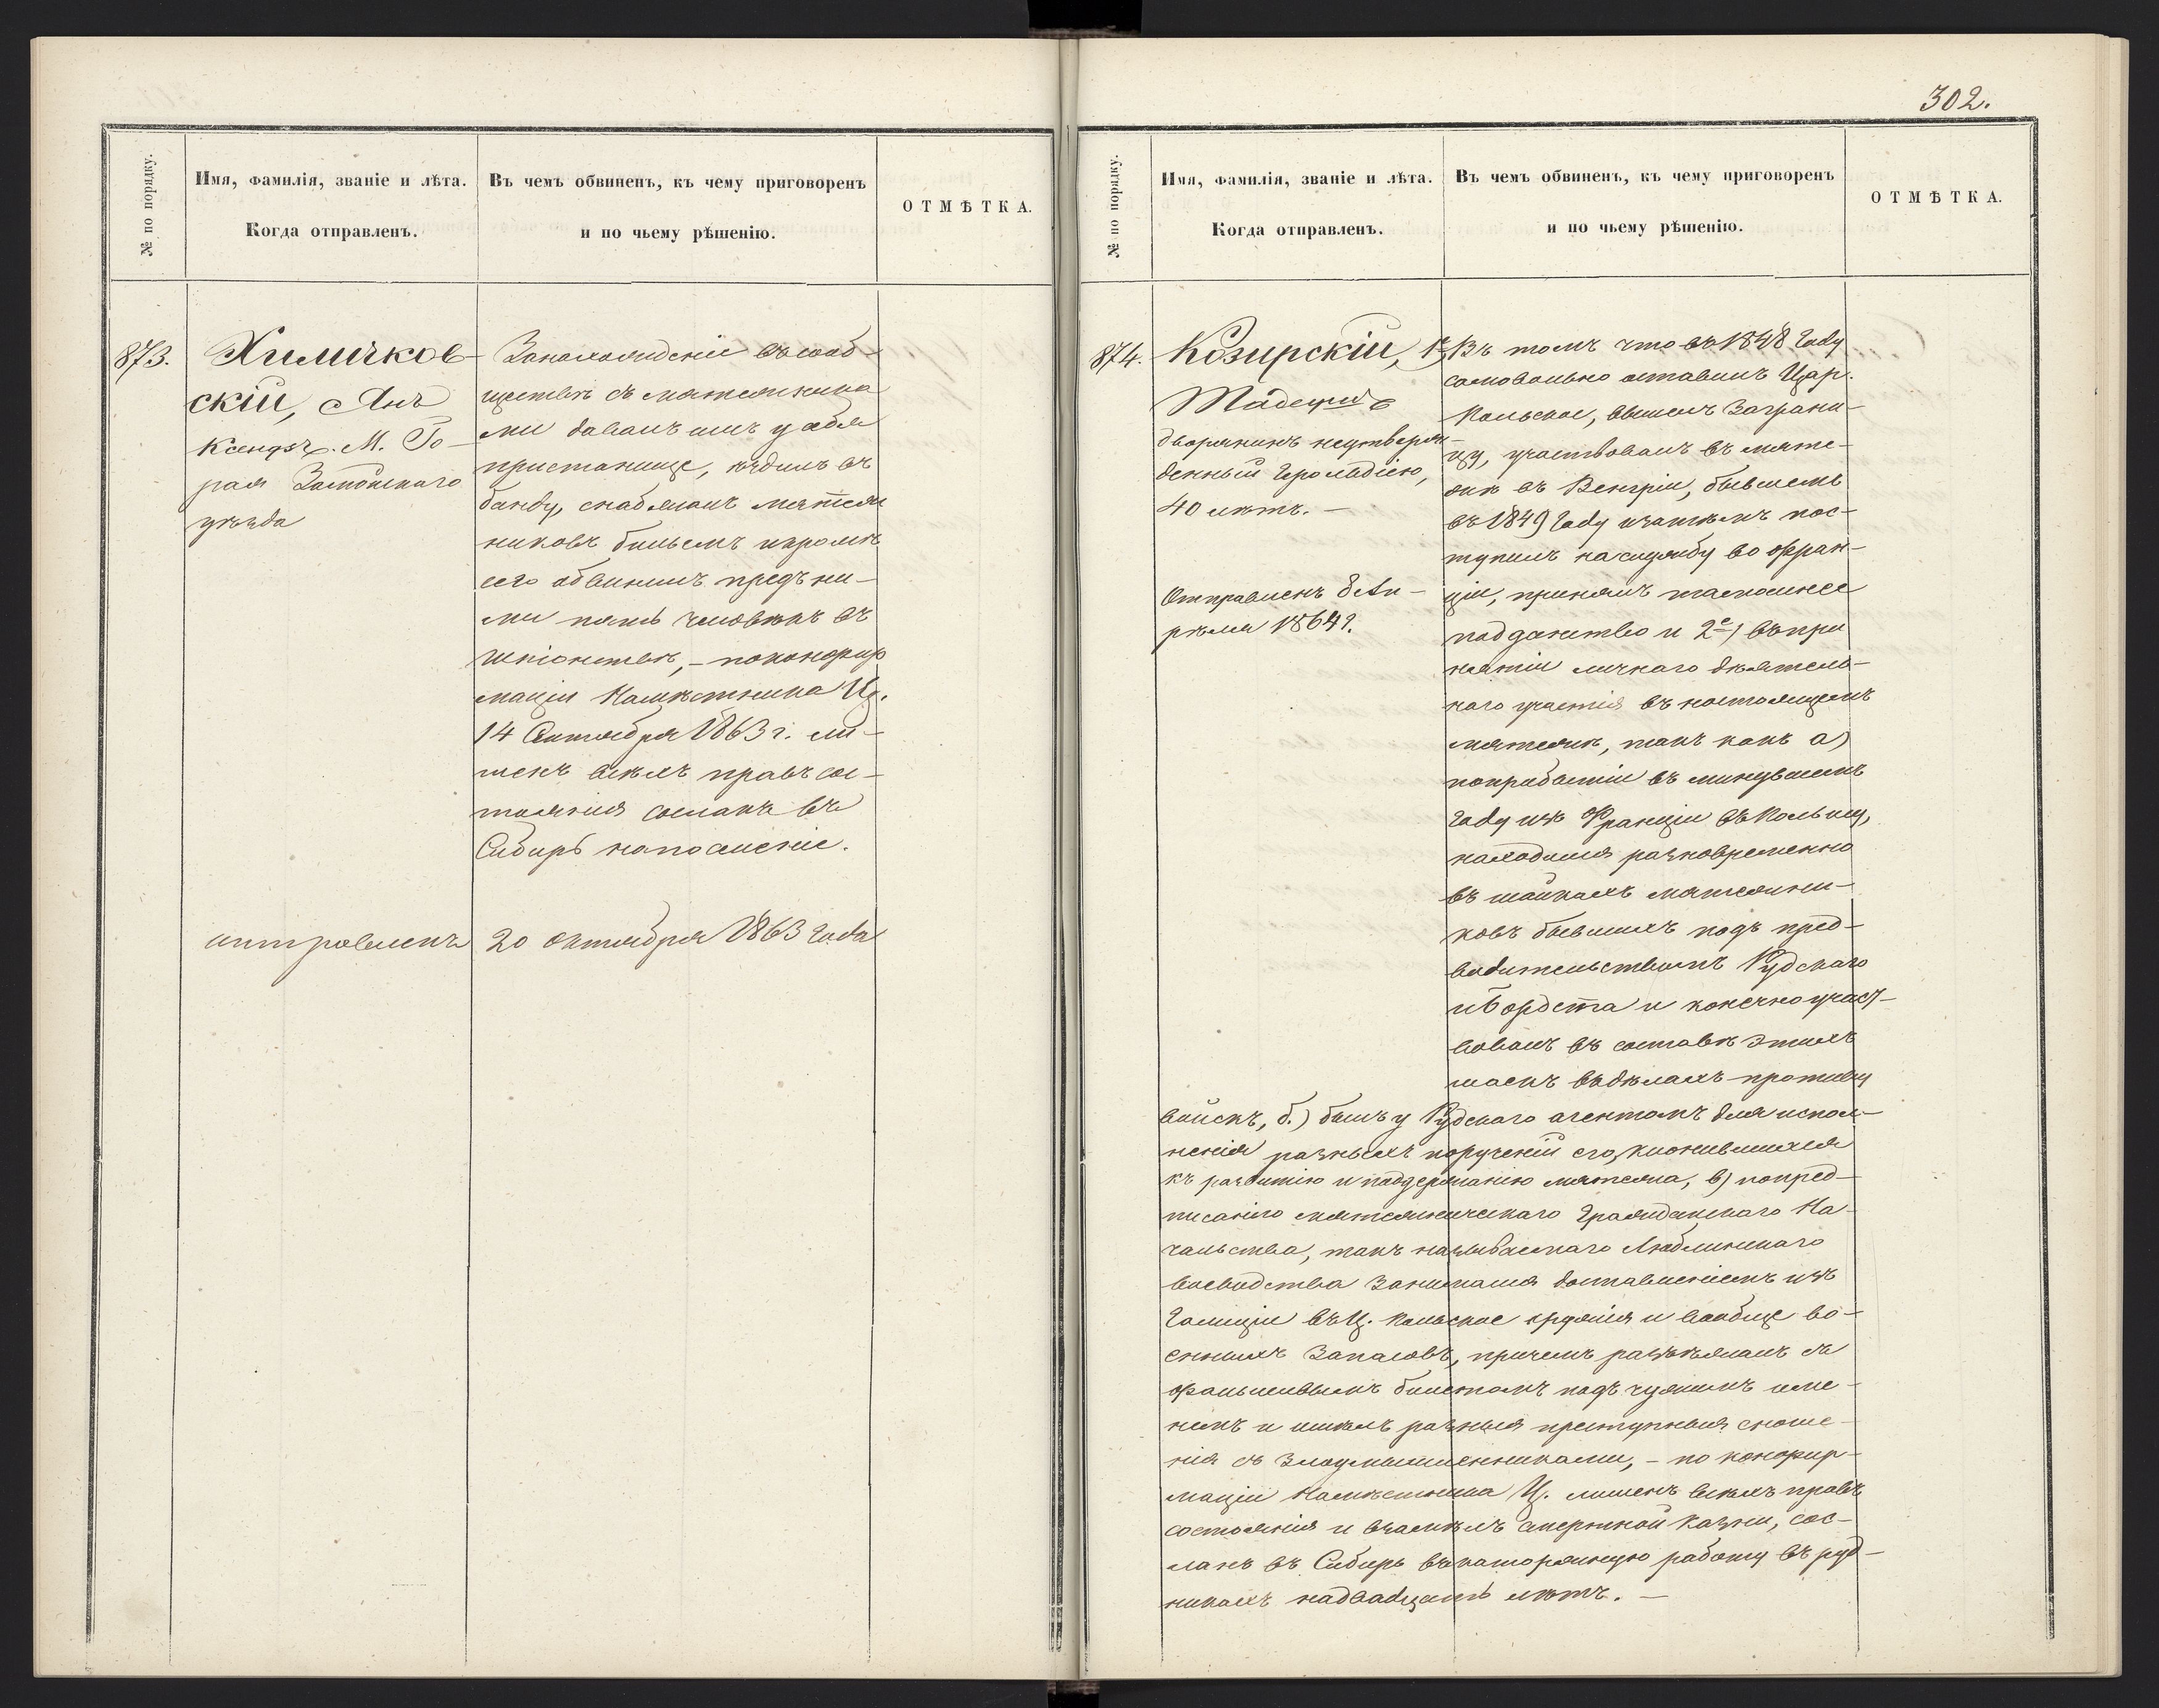 302.
№ по порядку.
Имя, фамилія, званіе и лѣта.
Когда отправленъ.
Въ чемъ обвиненъ, къ чему приговоренъ
и по чьему рѣшенію.
ОТМѢТКА.
873.
Химичков-
скій, Янъ
Ксендзъ. М. Го-
рая Замойскаго
уѣзда
За нахожденіе въ сооб-
ществѣ съ мятежника
ми давалъ имъ у себя
пристанище, ѣздилъ въ
банду, снабжалъ мятеж
никовъ бельемъ и кромѣ
сего обвинилъ предъ ни-
ми пять человѣкъ въ
шпіонствѣ, - по конфир
маціи Намѣстника Ц.
14 Сентября 1863 г. ли-
шенъ всѣхъ правъ сос-
тоянія сосланъ въ
Сибирь на поселеніе.
отправленъ 20 октября 1863 года
№ по порядку.
Имя, фамилія, званіе и лѣта.
Когда отправленъ.
Въ чемъ обвиненъ, къ чему приговоренъ
и по чьему рѣшенію.
ОТМѢТКА.
874.
Козирскій,
Тадеушъ
дворянинъ неутверж-
денный Герольдіею,
40 лѣтъ. -
Отправленъ 8 Ап-
рѣля 1864 г.
1е) Въ томъ что въ 1848 году
самовольно оставилъ Цар.
Польское, вышелъ заграни-
цу, участвовалъ въ мяте-
жѣ въ Венгріи, бывшемъ
въ 1849 году и затѣмъ пос-
тупилъ на службу во Фран-
ціи, принялъ тамошнее
подданство и 2е) въ при
нятіи личнаго дѣятель-
наго участія въ настоящемъ
мятежѣ, такъ какъ а)
по прибытіи въ минувшемъ
году изъ Франціи въ Польшу,
находился разновременно
въ шайкахъ мятежни-
ковъ бывшихъ подъ пред-
водительствомъ Рудскаго
и конечно участ-
вовалъ въ составѣ этихъ
шаекъ въ дѣлахъ противу
войскъ, б.) былъ у Рудскаго агентомъ для испол-
ненія разныхъ порученій его, клонившихся
къ развитію и поддержанію мятежа, в) по пред-
писанію мятежническаго Гражданскаго На-
чальства, такъ называемаго Люблинскаго
воеводства занимался доставленіемъ изъ
Галиціи въ Ц. Польское орудія и вообще во-
енныхъ запасовъ, причемъ разъѣзжалъ съ
фальшивымъ билетомъ подъ чужимъ име-
немъ и имѣлъ разныя преступныя сноше-
нія съ злоумышленниками, - по конфир-
маціи Намѣстника Ц. лишенъ всѣхъ правъ
состоянія и взамѣнъ смертной казни, сос-
ланъ въ Сибирь въ каторжную работу въ руд-
никахъ на двадцать лѣтъ. -